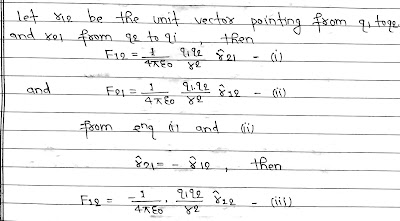 let r12 be the unit vector pointing from q1 to q2
and r21 from q2 to qi , then
F12 = 1/4πε0 q1q2/r2 r̂21 - (i)
and F21 = 1/4πε0 q1q2/r2 r̂12 - (ii)
from enq (i) and (ii)
r̂21 = - r̂12 , then
F12 = -1/4πε0 . q1q2/r2 r̂12 - (iii)